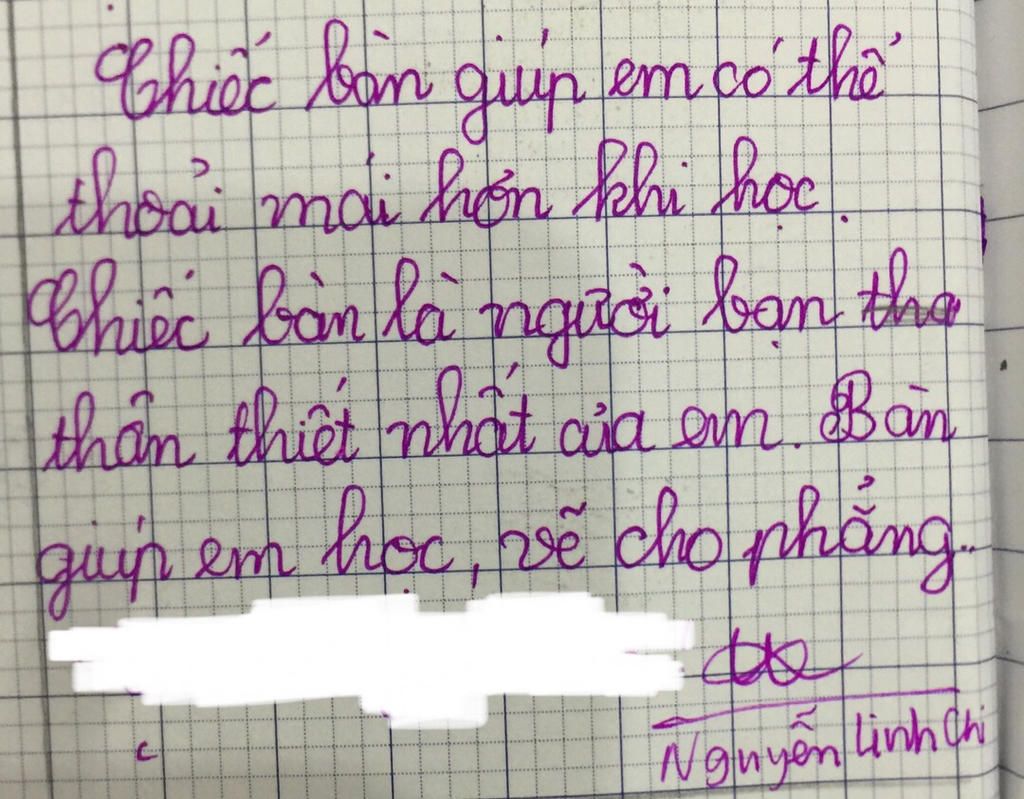 Chiếc bàn giúp em có thể
thoải mái hơn khi học.
Chiếc bàn là người bạn tha
thân thiết nhất của em. Bàn
giúp em học, vẽ cho phẳng..
Nguyễn Linh Chi